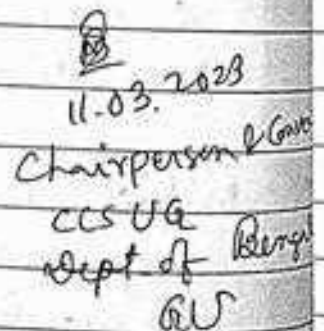 11.03.2023
Chairperson &
CCS UG
Dept. of
GU